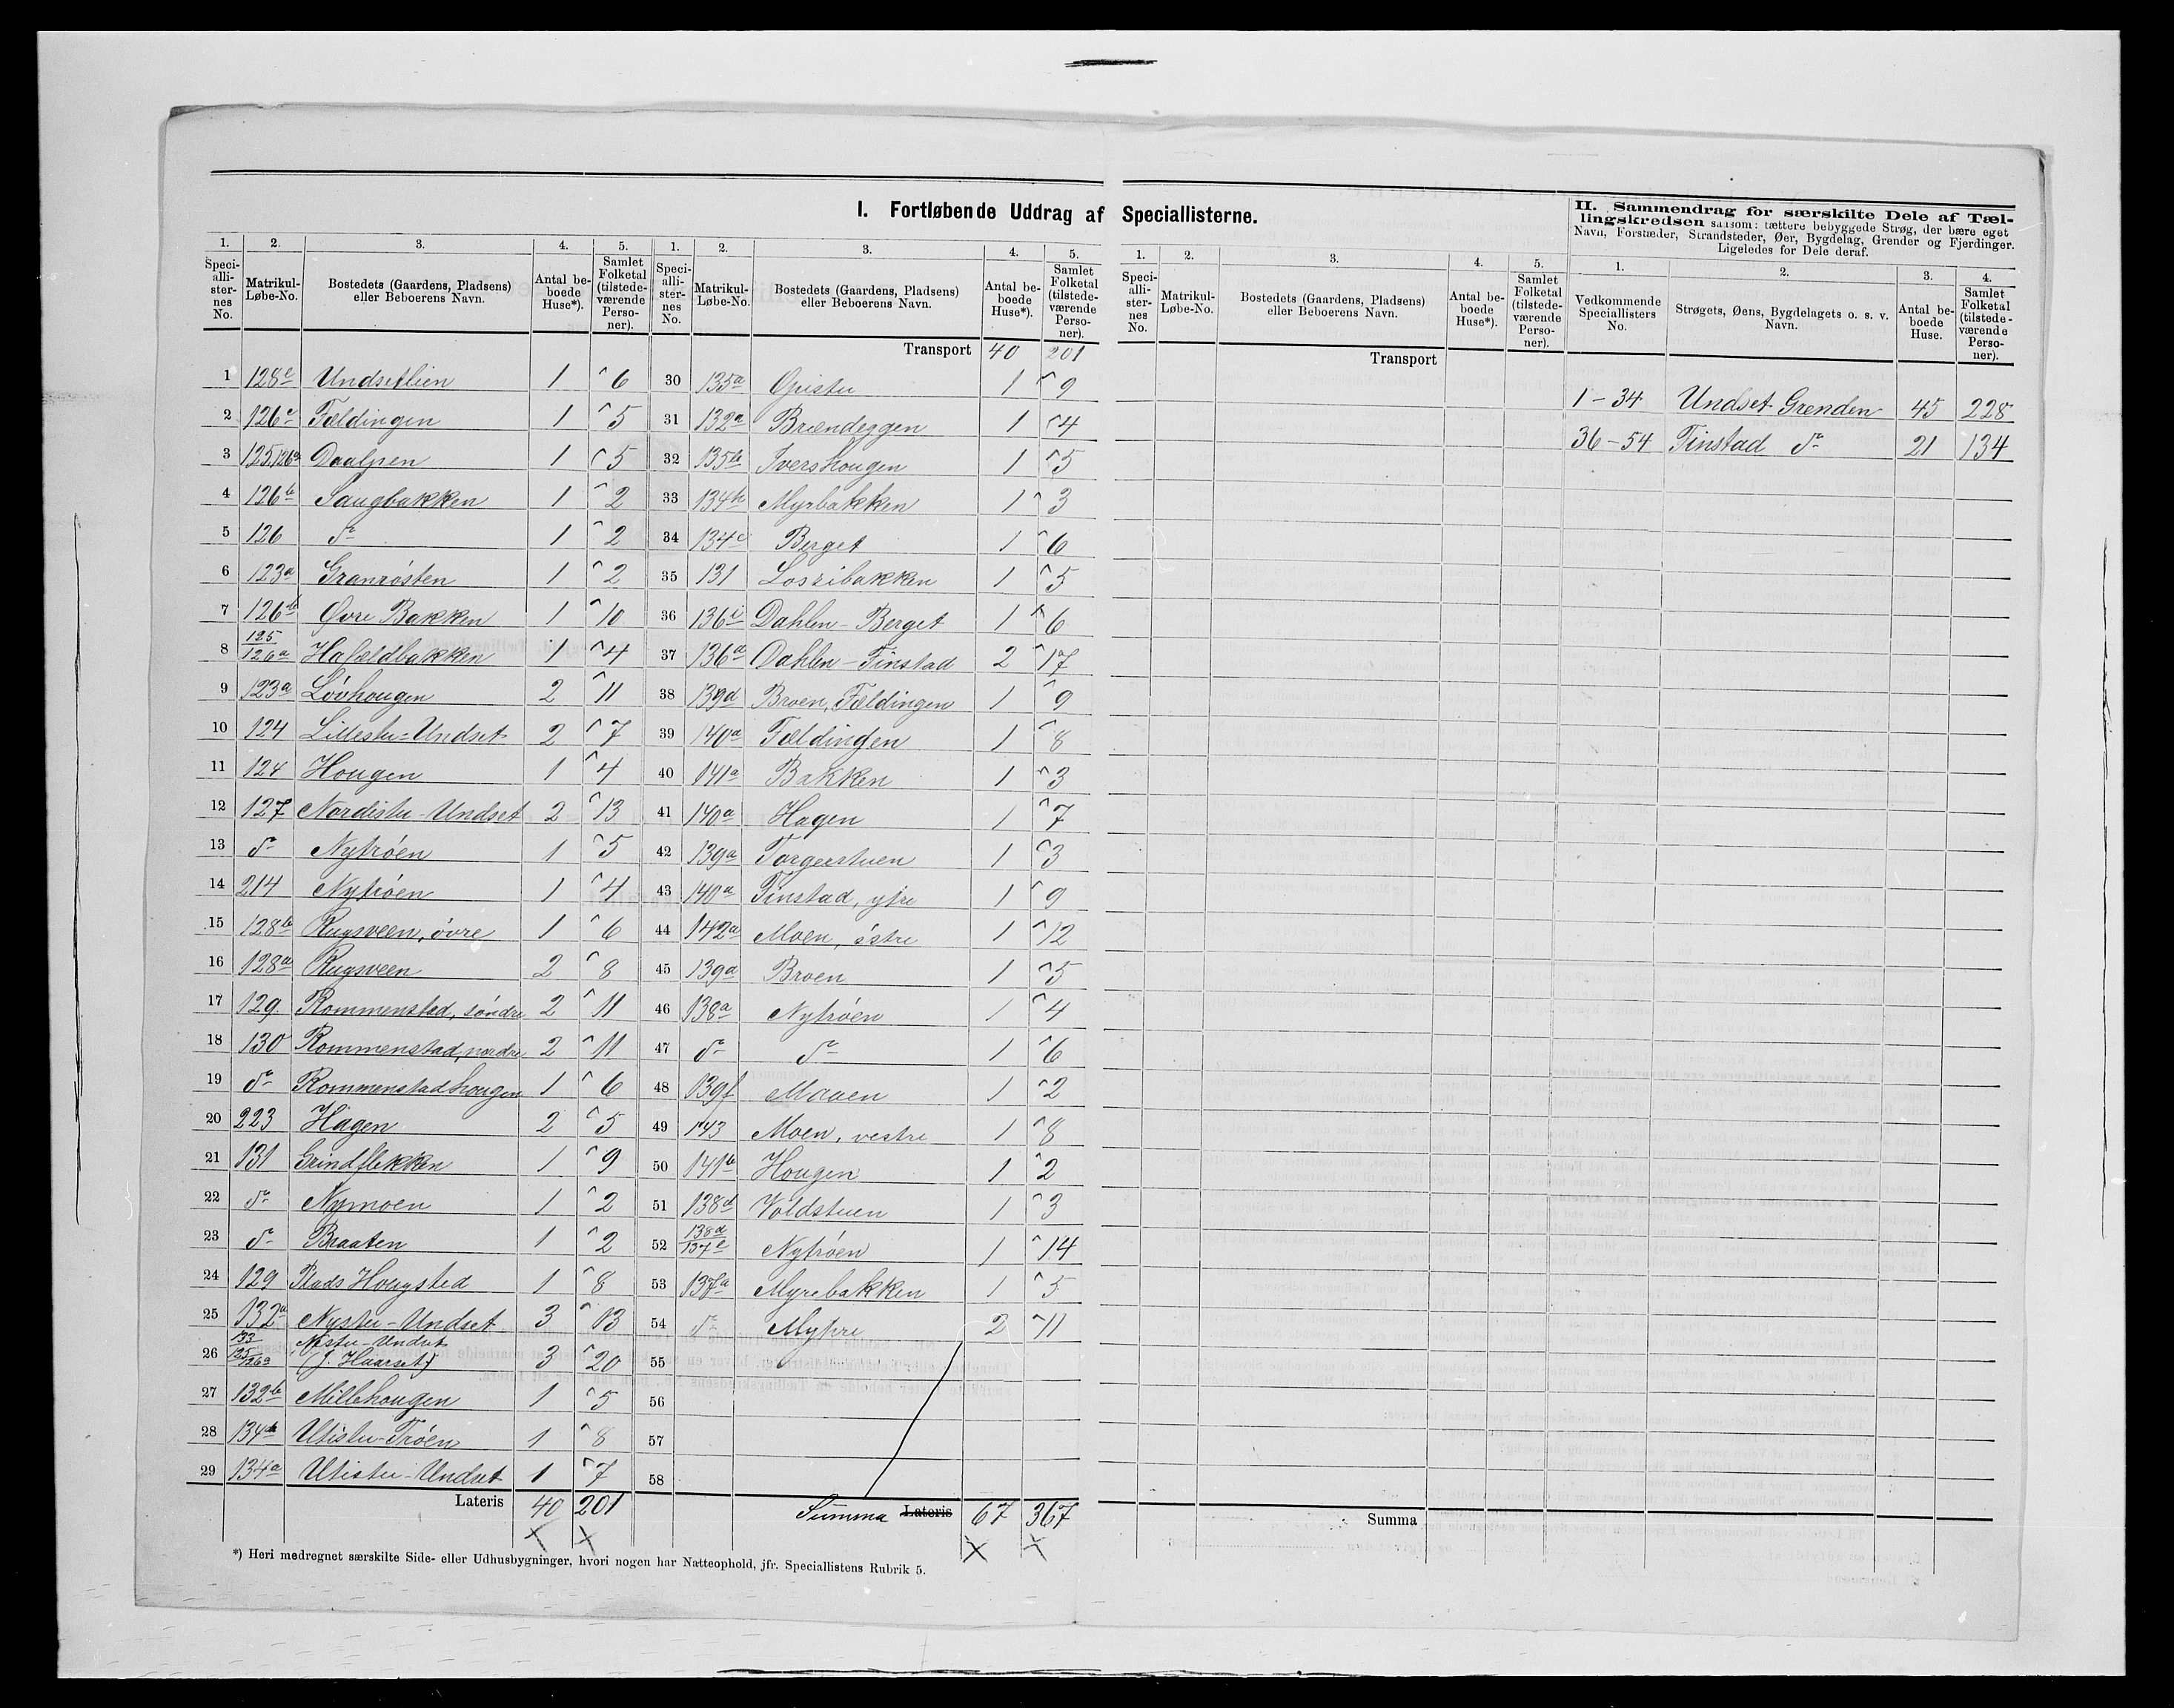 I. Fortløbende Uddrag af Speciallisterne.
1. 2. 3. 4. 5.
Speci-alli-ster-nes No. Matrikul-Løbe-No. Bostedets (Gaardens, Pladsens) eller Beboerens Navn. Antal be-boede Huse*). Samlet Folketal (tilstede-værende Perso-ner).
1 128c Undsetlien 1 6
2 126c Fældingen 1 5
3 125,126a Daalpen 1 5
4 126b Saugbakken 1 2
5 126 do 1 2
6 123a Granrósten 1 2
7 126b Øvre Bakken 1 10
8 125/126a Hafældbakken 1 4
9 123a Lóvhougen 2 11
10 124 Lillestu-Undset 2 7
11 124 Hougen 1 4
12 127 Nordistu-Undset 2 13
13 do Nytróen 1 5
14 214 Nytróen 1 4
15 128b Rugsveen, óvre 1 6
16 128a Rugsveen 2 8
17 129 Rommenstad, sóndre 2 11
18 130 Rommenstad, nordre 2 11
19 do Rommenstadhougen 1 6
20 223 Hagen 2 5
21 131 Grindflekken 1 9
22 do Nymoen 1 2
23 do Braaten 1 2
24 129 Plads Hougsted 1 8
25 132a Nystu-Undset 3 13
26 133 125/126a Nystu-Undset (J. Haarset) 3 20
27 132b Millehougen 1 5
28 134 Utistu-Tróen 1 8
29 134a Utistu-Undset 1 7
Lateris 40 201
1. 2. 3. 4. 5.
Speci-alli-ster-nes No. Matrikul-Løbe-No. Bostedets (Gaardens, Pladsens) eller Beboerens Navn. Antal be-boede Huse*). Samlet Folketal (tilstede-værende Perso-ner).
Transport 40 201
30 135a Opistu 1 9
31 132a Brændeggen 1 4
32 135b Ivershougen 1 5
33 134b Myrbakken 1 3
34 134c Berget 1 6
35 131 Losribakken 1 5
36 136c Dahlen-Berget 1 6
37 136a Dahlen-Finstad 2 17
38 139d Broen, Fældingen 1 9
39 140a Fældingen 1 8
40 141a Bakken 1 3
41 140a Hagen 1 7
42 139a Torgerstuen 1 3
43 140a Finstad, ytre 1 9
44 142a Moen, óstre 1 12
45 139a Broen 1 5
46 138a Nytróen 1 4
47 do do 1 6
48 139f Maaen 1 2
49 143 Moen, vestre 1 8
50 141b Hougen 1 2
51 138d Voldstuen 1 3
52 138d/137c Nytróen 1 14
53 137a Myrebakken 1 5
54 do Myhre 2 11
55
56
57
58
Summa Lateris 67 367
1. 2. 3. 4. 5.
Speci-alli-ster-nes No. Matrikul-Løbe-No. Bostedets (Gaardens, Pladsens) eller Beboerens Navn. Antal be-boede Huse*). Samlet Folketal (tilstede-værende Perso-ner).
Transport
Summa
II. Sammendrag for særskilte Dele af Tæl-
lingskredsen saasom: tættere bebyggede Strøg, der bære eget
Navn, Forstæder, Strandsteder, Øer, Bygdelag, Grender og Fjerdinger.
Ligeledes for Dele deraf.
1. 2. 3. 4.
Vedkommende Speciallisters No. Strøgets, Øens, Bygdelagets o. s. v. Navn. Antal be-boede Huse. Samlet Folketal (tilstede-værende Perso-ner).
1-34 Undset Grenden 45 228
36-54 Finstad do 21 134
*) Heri medregnet særskilte Side- eller Udhusbygninger, hvori nogen har Natteophold, jfr. Speciallistens Rubrik 5.